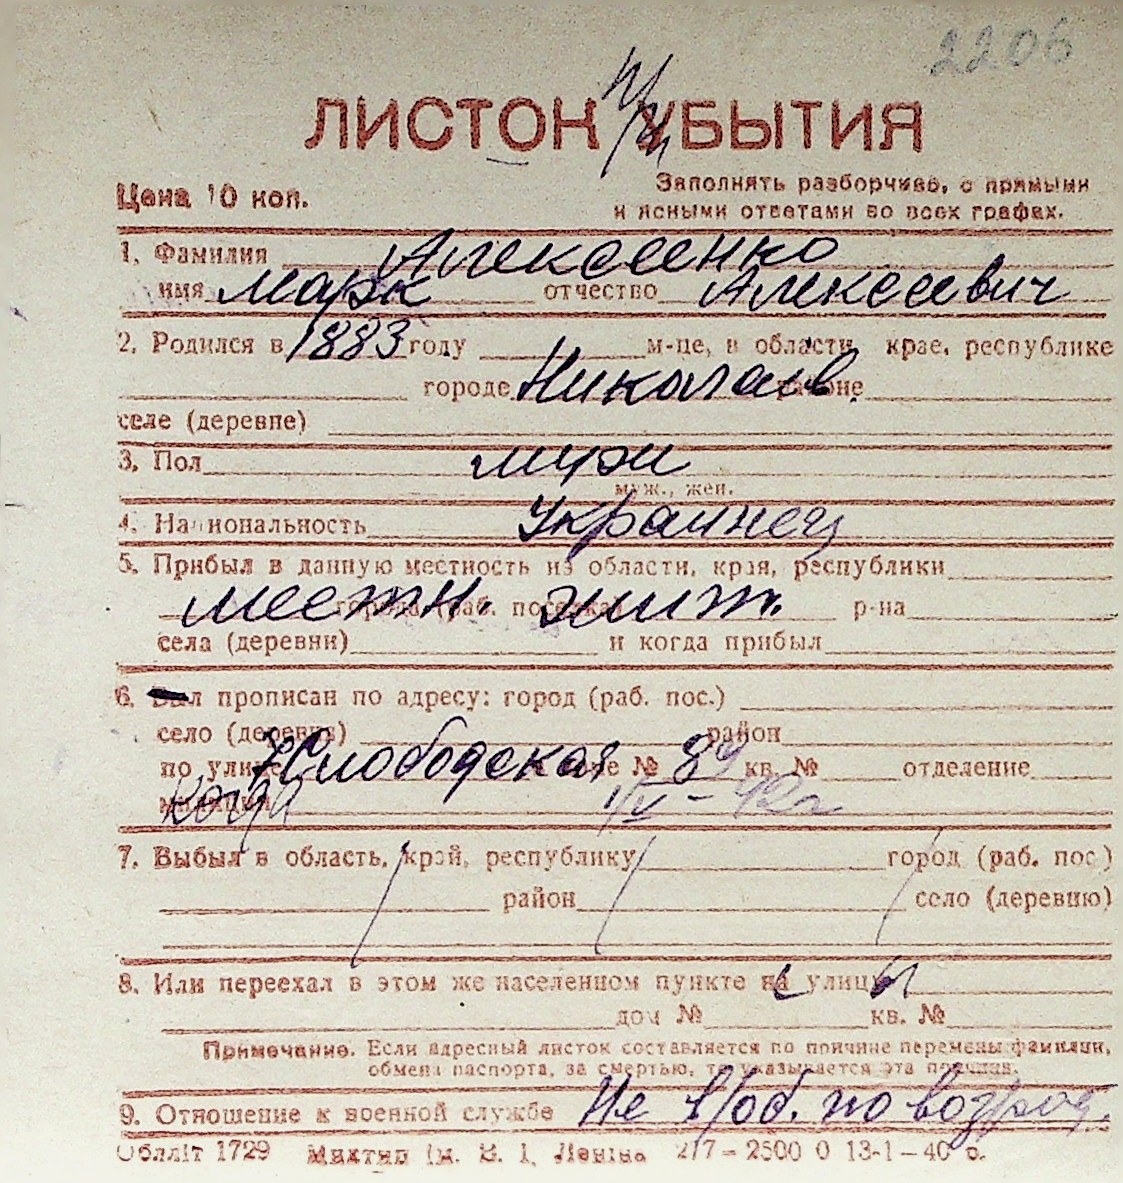 2206
ЛИСТОК УБЫТИЯ
Цена 10 коп.
Заполнять разборчиво, с прямыми
и ясными ответами во всех графах.
1. Фамилия Алексеенко
имя Марк отчество Алексеевич
2. Родился в 1883 году м-це, в области, крае, республике
городе Николаев. районе
селе (деревне)
3. Пол муж
муж., жен.
4. Национальность Украинец
5. Прибыл в данную местность из области, края, республики
местн. жит. города (раб. поселка) р-на
села (деревни) и когда прибыл
6. Был прописан по адресу: город (раб. пос.)
село (деревня) район
по улице Слободская № 89 кв. № отделение
милиции когда 1/V - 42 г
7. Выбыл в область, край, республику город (раб. пос.)
район село (деревню)
8. Или переехал в этом же населенном пункте на улицу
с ы
дом № кв. №
Примечание. Если адресный листок составляется по причине перемены фамилии,
обмена паспорта, за смертью, то указывается эта причина.
9. Отношение к военной службе Не в/об. по возрас.
Обллiт 1729 Миктип iм. В. I. Ленiна 277-2500 0 13-1-40 р.